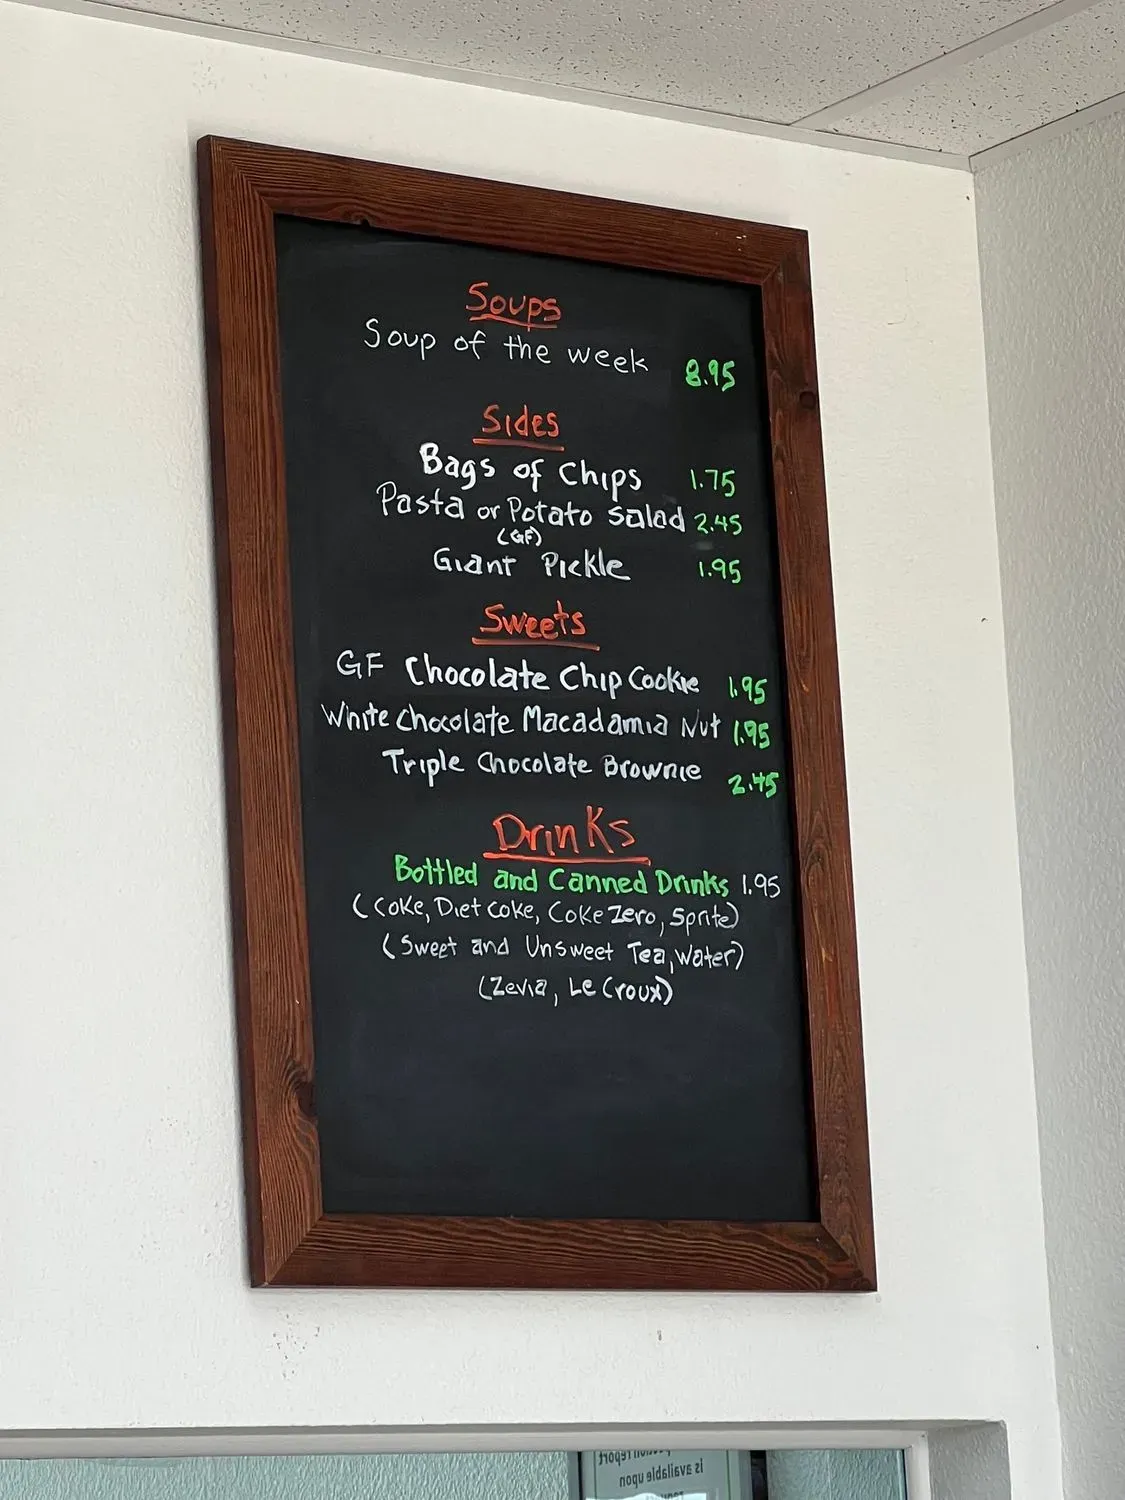 Soups
Soup of the week 8.95
Sides
Bags of Chips 1.75
Pasta or Potato Salad 2.45
(GF)
Giant Pickle 1.95
Sweets
GF Chocolate Chip Cookie 1.95
White Chocolate Macadamia Nut 1.95
Triple Chocolate Brownie 2.45
Drinks
Bottled and Canned Drinks 1.95
(Coke, Diet Coke, Coke Zero, Sprite)
(Sweet and Unsweet Tea, Water)
(Zevia, Le Croux)
report
is available
upon